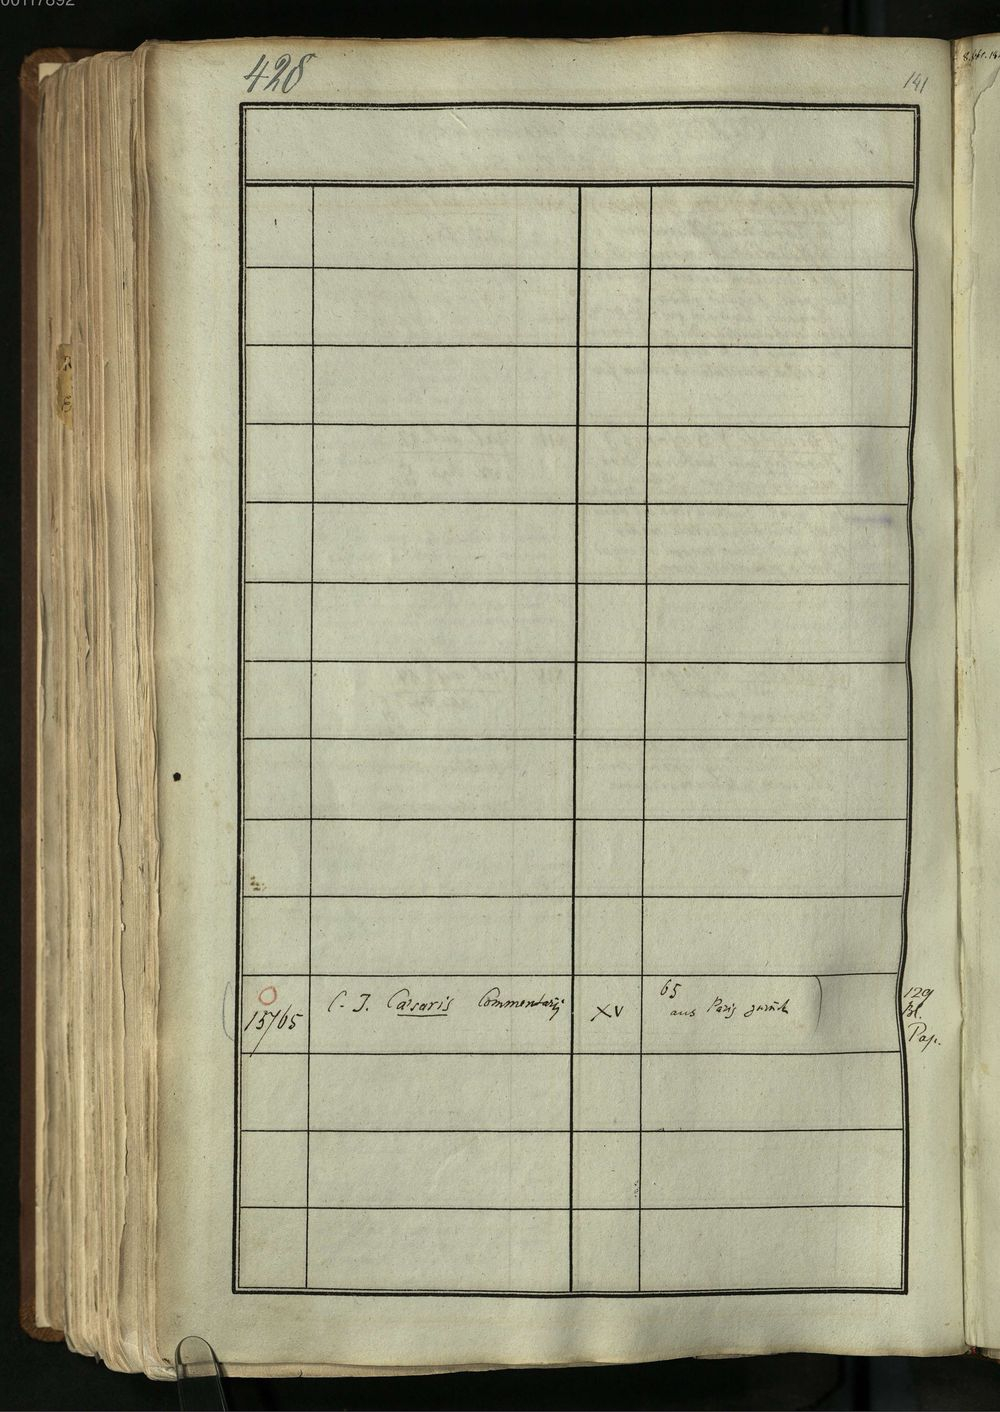 00117892
428
141
15765
C. J. Caesaris Commentarij
XV
65
aus Paris zurück
129
Bl.
Pap.